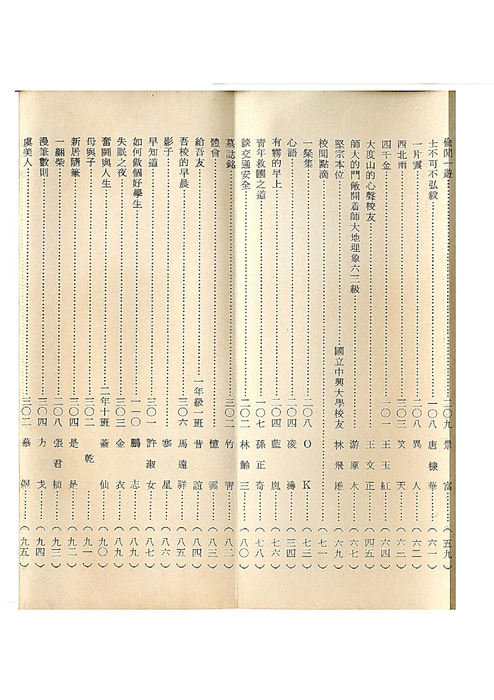 偷閒一遊……二〇九 景 富 (五九)
士不可不弘毅……一〇八 唐棣華 (六一)
一片雲……二〇八 異 人 (六二)
西北雨……三〇三 笑 天 (六三)
四千金……一〇一 王玉紅 (六四)
大度山的心聲校友……王文正 (四五)
師大的門敞開着師大地理象六三級……游原木 (六七)
堅宗本位……國立中興大學校友 林飛雄 (六九)
校聞點滴……(七一)
一祭集……二〇八 O K (七三)
心語……二〇四 凌 濤 (三四)
有霧的早上……二〇四 藍 嵐 (七六)
青年救國之道……一〇七 孫正奇 (七八)
談交通安全……二〇二 林 齡 (八〇)
墓誌銘……三〇二 竹 青 (八二)
體會……憶 雲 (八三)
給吾友……一年級一班 昔 誼 (八四)
吾校的早晨……三〇六 馬遠祥 (八五)
影子……寒 星 (八六)
早知道……三〇一 許淑女 (八七)
如何做個好學生……一一〇 鵬 志 (八八)
失眠之夜……三〇三 金 衣 (八九)
奮鬪與人生……二年十班 蓋 仙 (九〇)
母與子……三〇二 乾 (九一)
新居隨筆……三〇四 是 是 (九二)
一綑柴……二〇八 張君楨 (九三)
漫筆數則……三〇四 力 戈 (九四)
虞美人……三〇二 慕 (九五)